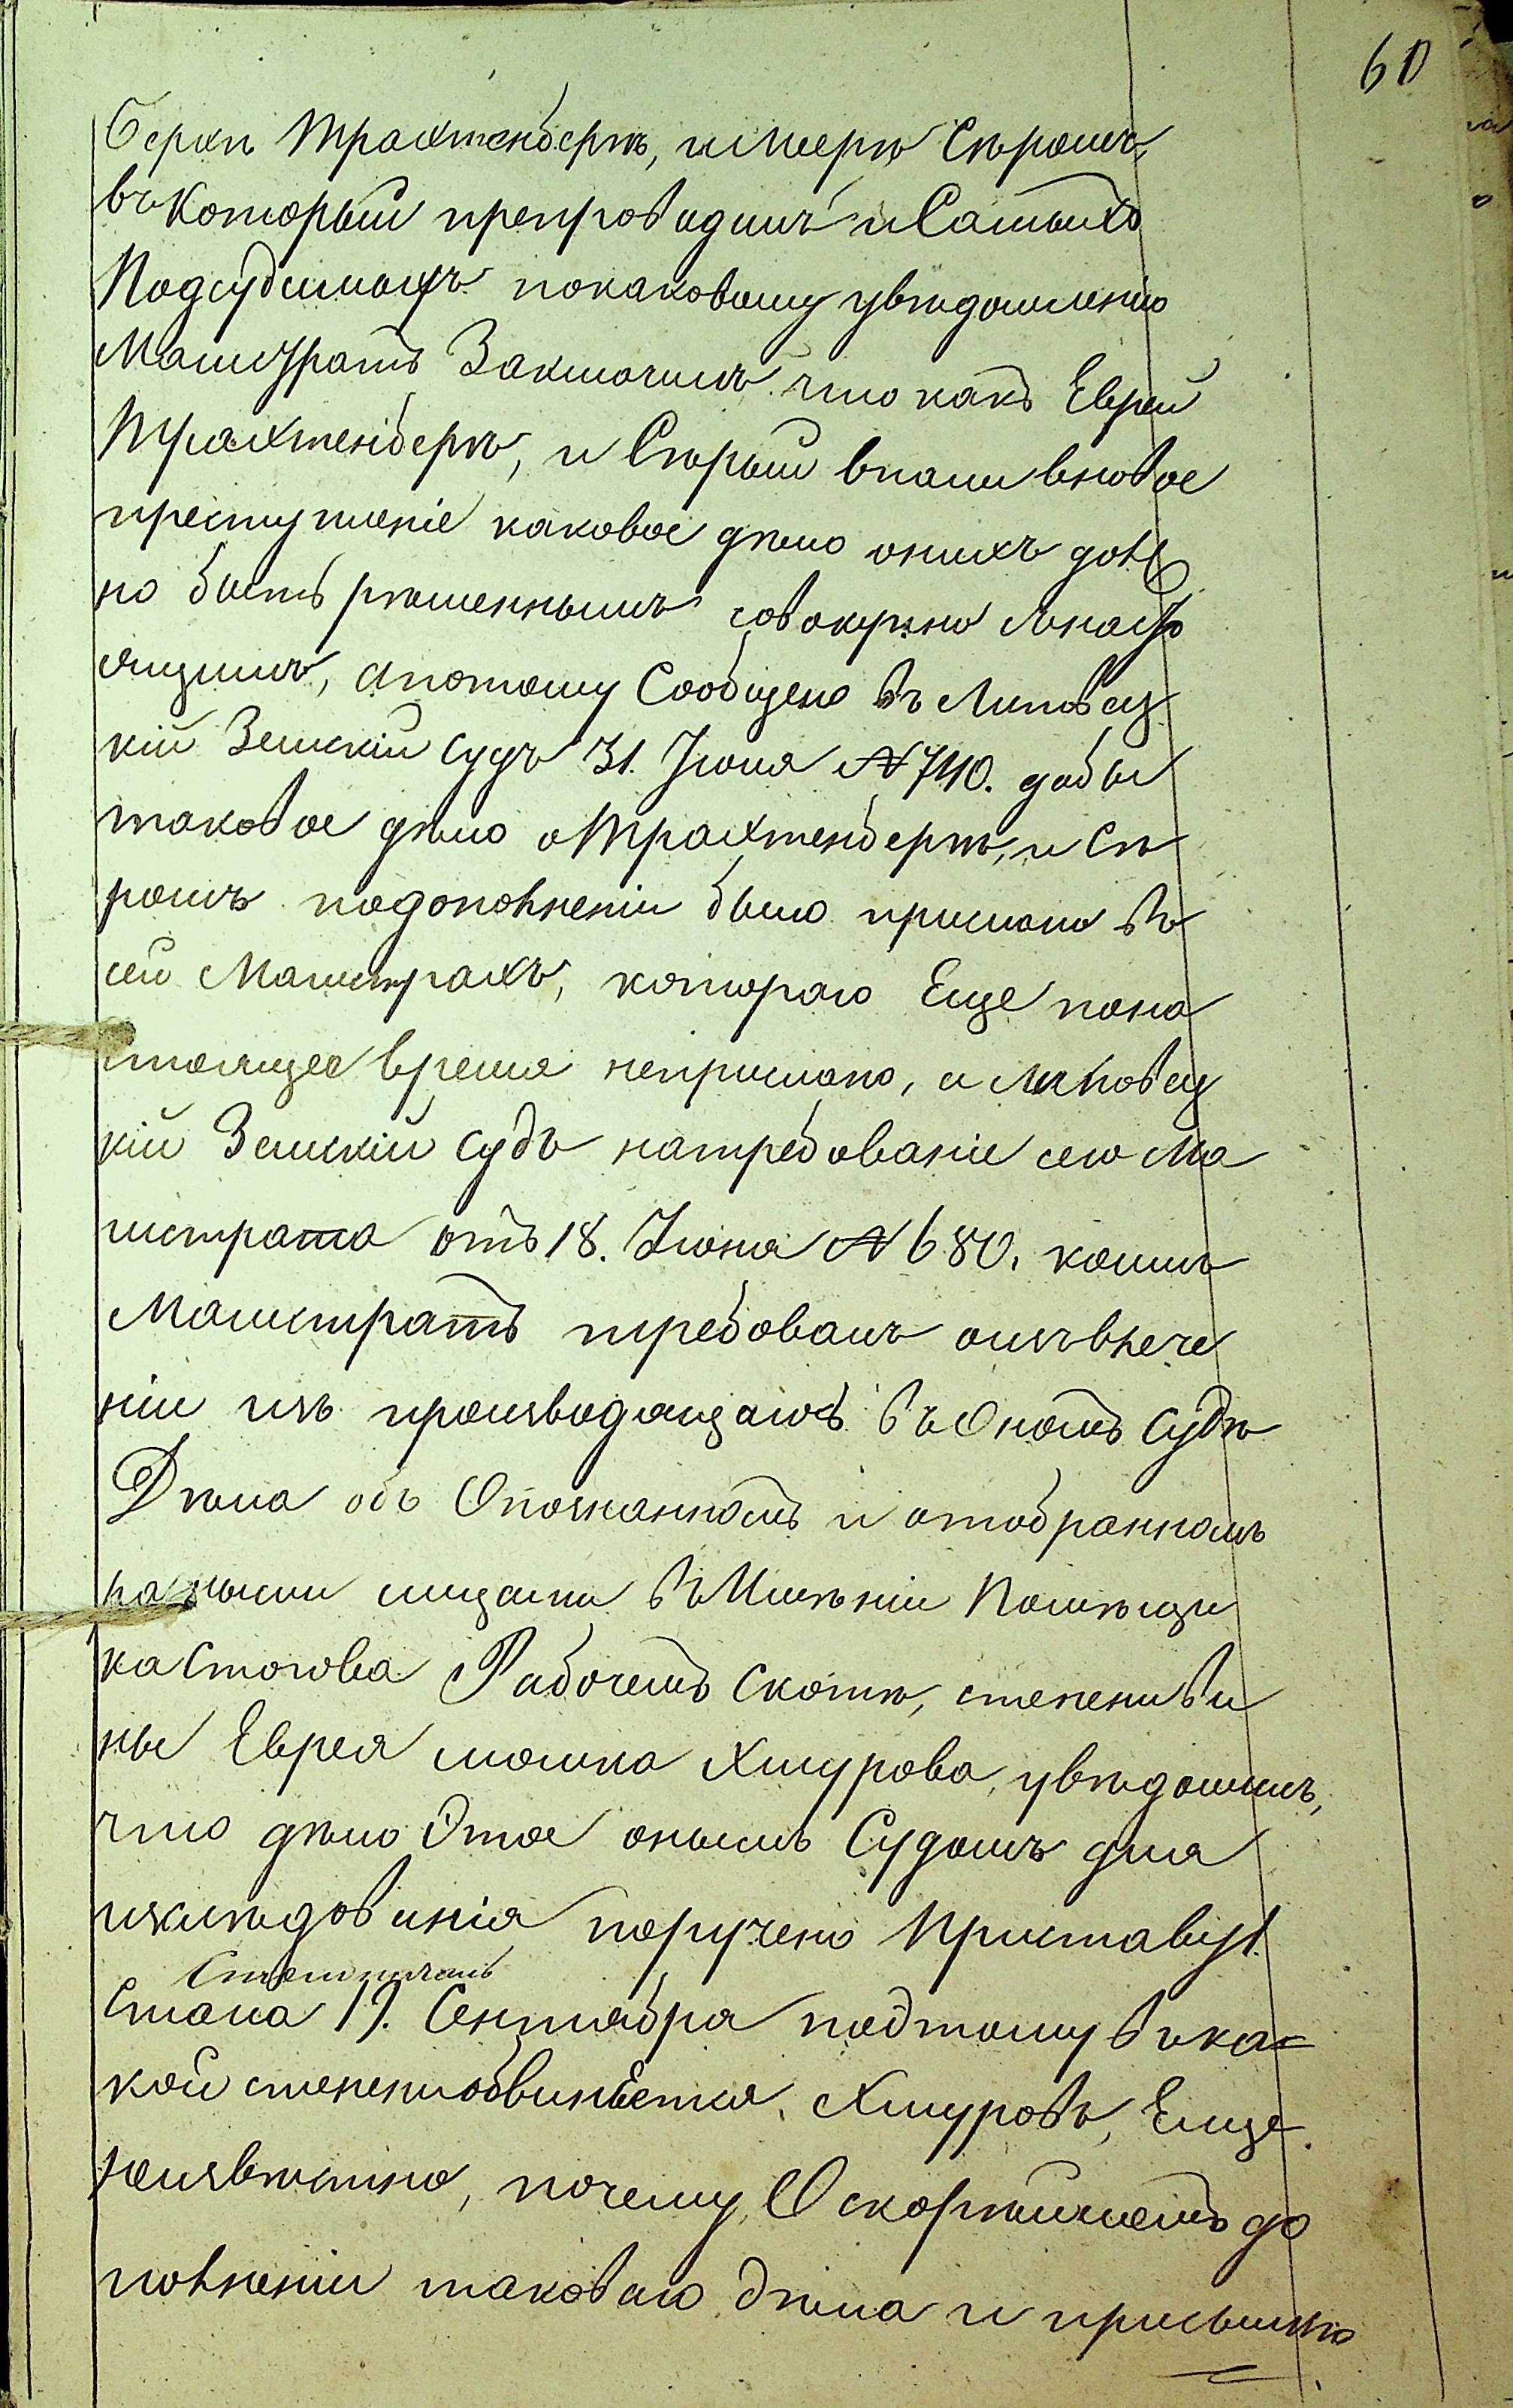 60
Берки Трахтенберг, и Мееръ Сѣромъ,
въ который препроводилъ и самыхъ
Подсудимыхъ покаковому увѣдомленію
Магистратъ Заключилъ что какъ Евреи
Трахтенберг, и Сѣрый впали вновое
преступленіе каковое дѣло онихъ дол
но быть рѣшеннымъ совокупно снасто
ящимъ, апотому Сообщено въ Липовец
кій Земскій Судъ 31. Іюля №740. дабы
таковое дѣло оТрахтенбергѣ, и Сѣ
ромъ подополненіи было прислано въ
сей Магистратъ, котораго Еще пона
стоящее время неприслано, и Липовец
кій Земскій Судъ натребованіе сего Ма
гистрата отъ 18. Іюня №680. коимъ
Магистратъ требовалъ оизвлече
ніи изъ производящагось въ Ономъ Судѣ
Дѣла объ Опознанномъ и отобранномъ
разными лицами въ Имѣніи Помѣщи
ка Стогова Рабочемъ Скотѣ, степени ви
ны Еврея Мошка Хмурова, увѣдомилъ,
что дѣло Этое онымъ Судомъ для
изслѣдованія поручено Приставу 1.
Стана 19. Сентября подтому въ ка=
кой степени обвиняется Хмуровъ, Еще
неизвѣстно, почему, О скорѣйшемъ до
полненіи таковаго дѣла и присылкѣ